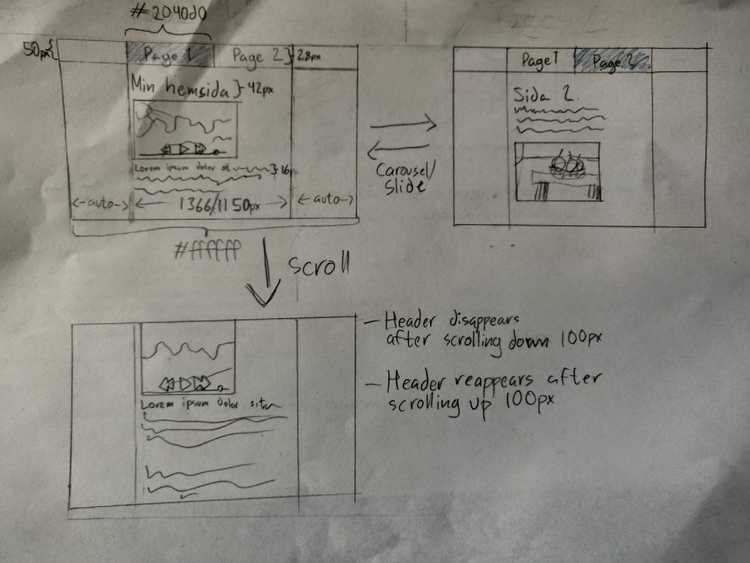 #2040d0
50px
Page 1
Page 2
28px
Min hemsida
42px
Lorem ipsum dolor
16p
<-auto->
1366/1150px
<-auto->
#ffffff
Page 1
Page 2
Sida 2.
Carousel/
slide
scroll
Lorem ipsum dolor sit
- Header disappears
after scrolling down 100px
- Header reappears after
scrolling up 100px